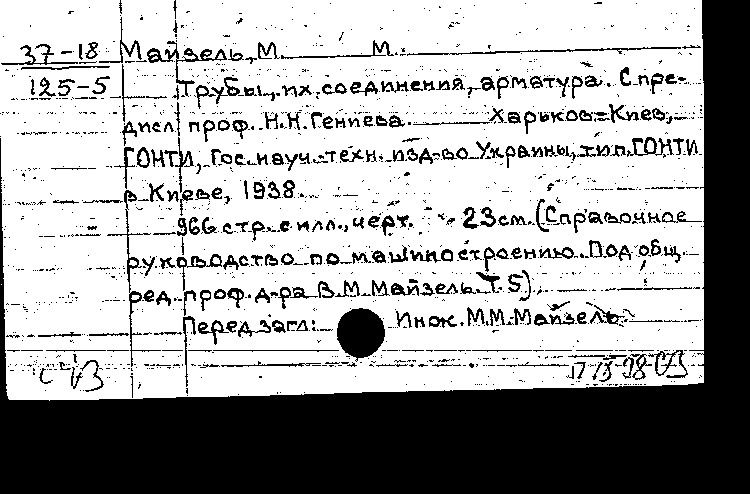 37-18 Майзель, М. М.
125-5 Трубы, их соединения, арматура. С пре-
дисл проф. Н.Н.Гениева. Харьков-Киев,
ГОНТИ, Гос. науч.-техн. изд-во Украины, тип. ГОНТИ
в Киеве, 1938.
966 стр. с илл., черт. 23 см. (Справочное
руководство по машиностроению. Под общ.
ред. проф. д-ра В.М. Майзель. Т. 5).
Перед загл: Инж. М.М. Майзель.